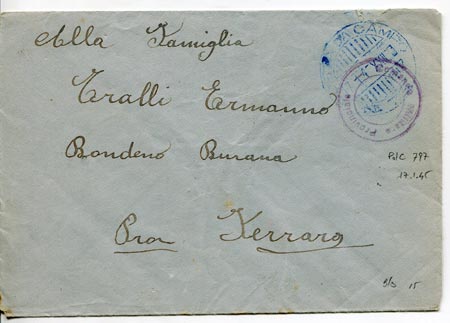 Alla Famiglia
Tralli Ermanno
Bondeno Burana
Pro Ferrara
PdC 797
17.1.45
15